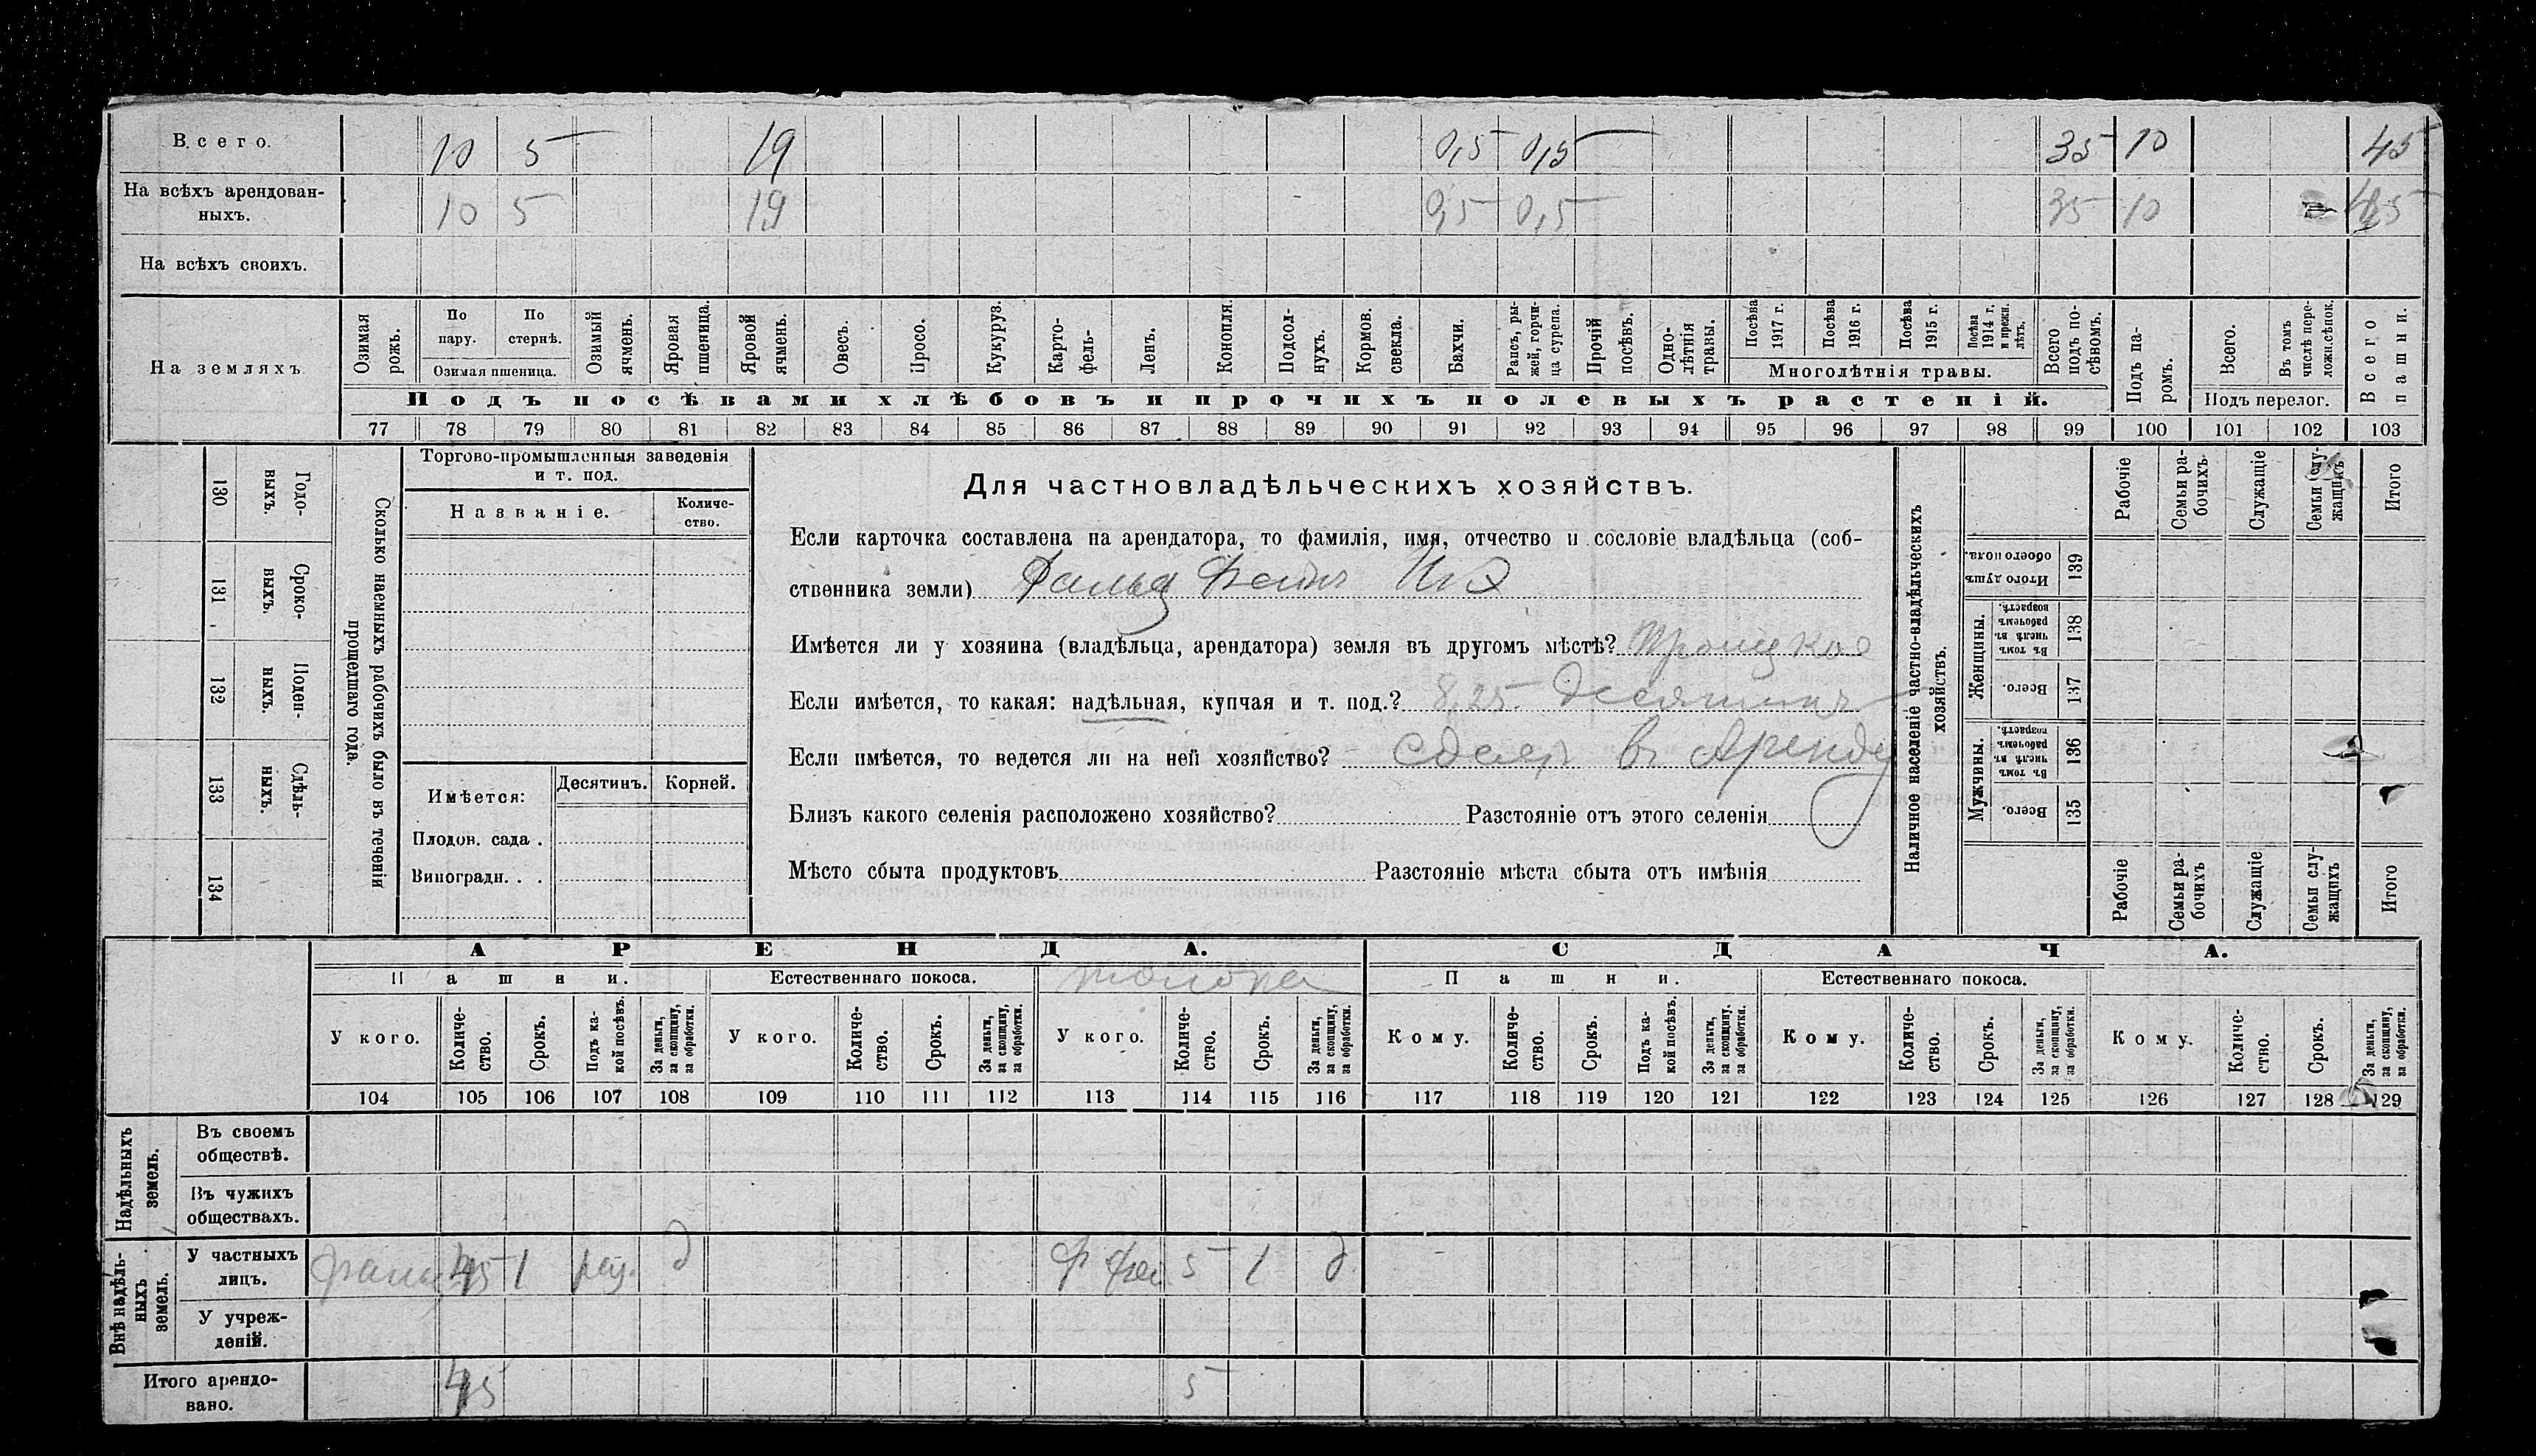 Всего. 10 5 19 0,5 0,5 35 10 45
На всѣхъ арендован-
ныхъ. 10 5 19 0,5 0,5 35 10 45
На всѣхъ своихъ.
На земляхъ
Озимая рожь.
По пару.
По стернѣ.
Озимая пшеница.
Озимый ячмень.
Яровая пшеница.
Яровой ячмень.
Овесъ.
Просо.
Кукуруз.
Карто-
фель-
Ленъ.
Конопля.
Подсол-
нухъ.
Кормов.
свекла.
Бахчи.
Рапсъ, ры-
жей, горчи-
ца сурепа.
Прочій
посѣвъ.
Одно-
лѣтнія
травы.
Посѣва
1917 г.
Посѣва
1916 г.
Посѣва
1915 г.
Посѣва
1914 г.
и прежн.
лѣтъ.
Многолѣтнія травы.
Всего
подъ по-
сѣвомъ.
Подъ па-
ромъ.
Всего.
Въ томъ
числѣ пере-
ложн.сѣнок.
Подъ перелог.
Всего
пашни.
Подъ посѣвами хлѣбовъ и прочихъ полевыхъ растеній.
77 78 79 80 81 82 83 84 85 86 87 88 89 90 91 92 93 94 95 96 97 98 99 100 101 102 103
130 Годо-
выхъ.
131 Сроко-
выхъ.
132 Поден-
ныхъ.
133 Сдѣль-
ныхъ.
134
Сколько наемныхъ рабочихъ было въ теченіи
прошедшаго года.
Торгово-промышленныя заведенія
и т. под.
Названіе.
Количе-
ство.
Имѣется:
Десятинъ.
Корней.
Плодов. сада .
Виноградн. . .
Для частновладѣльческихъ хозяйствъ.
Если карточка составлена на арендатора, то фамилія, имя, отчество и сословіе владѣльца (соб-
ственника земли) Фальц Фейнъ
Имѣется ли у хозяина (владѣльца, арендатора) земля въ другомъ мѣстѣ? Троицкое
Если имѣется, то какая: надѣльная, купчая и т. под.? 8,25 десятинъ
Если имѣется, то ведется ли на ней хозяйство? - сдаетъ въ Аренду
Близъ какого селенія расположено хозяйство? Разстояніе отъ этого селенія
Мѣсто сбыта продуктовъ Разстояніе мѣста сбыта отъ имѣнія
Наличное населеніе частно-владѣльческихъ
хозяйствъ.
Рабочіе
Семьи ра-
бочихъ
Служащіе
Семьи слу-
жащихъ
Итого
Итого душъ
обоего пола.
139
Женщины.
Въ томъ
числѣ въ
рабочемъ
возрастѣ.
138
Всего.
137
Мужчины.
Въ томъ
числѣ въ
рабочемъ
возрастѣ.
136
Всего.
135
Рабочіе
Семьи ра-
бочихъ
Служащіе
Семьи слу-
жащихъ
Итого
АРЕНДА.
СДАЧА.
Пашни.
Естественнаго покоса.
толока
Пашни.
Естественнаго покоса.
У кого.
Количе-
ство.
Срокъ.
Подъ ка-
кой посѣвъ.
За деньги,
за скопщину,
за обработки.
У кого.
Количе-
ство.
Срокъ.
За деньги,
за скопщину,
за обработки.
У кого.
Количе-
ство.
Срокъ.
За деньги,
за скопщину,
за обработки.
Кому.
Количе-
ство.
Срокъ.
Подъ ка-
кой посѣвъ.
За деньги,
за скопщину.
за обработки.
Кому.
Количе-
ство.
Срокъ.
За деньги,
за скопщину,
за обработки.
Кому.
Количе-
ство.
Срокъ.
За деньги,
за скопщину,
за обработки.
104 105 106 107 108 109 110 111 112 113 114 115 116 117 118 119 120 121 122 123 124 125 126 127 128 129
Надѣльныхъ
земель.
Въ своемъ
обществѣ.
Въ чужихъ
обществахъ.
Внѣ надѣль-
ныхъ
земель.
У частныхъ
лицъ. 45 1 д Ф 5 1 д
У учреж-
деній.
Итого арендо-
вано. 45 5